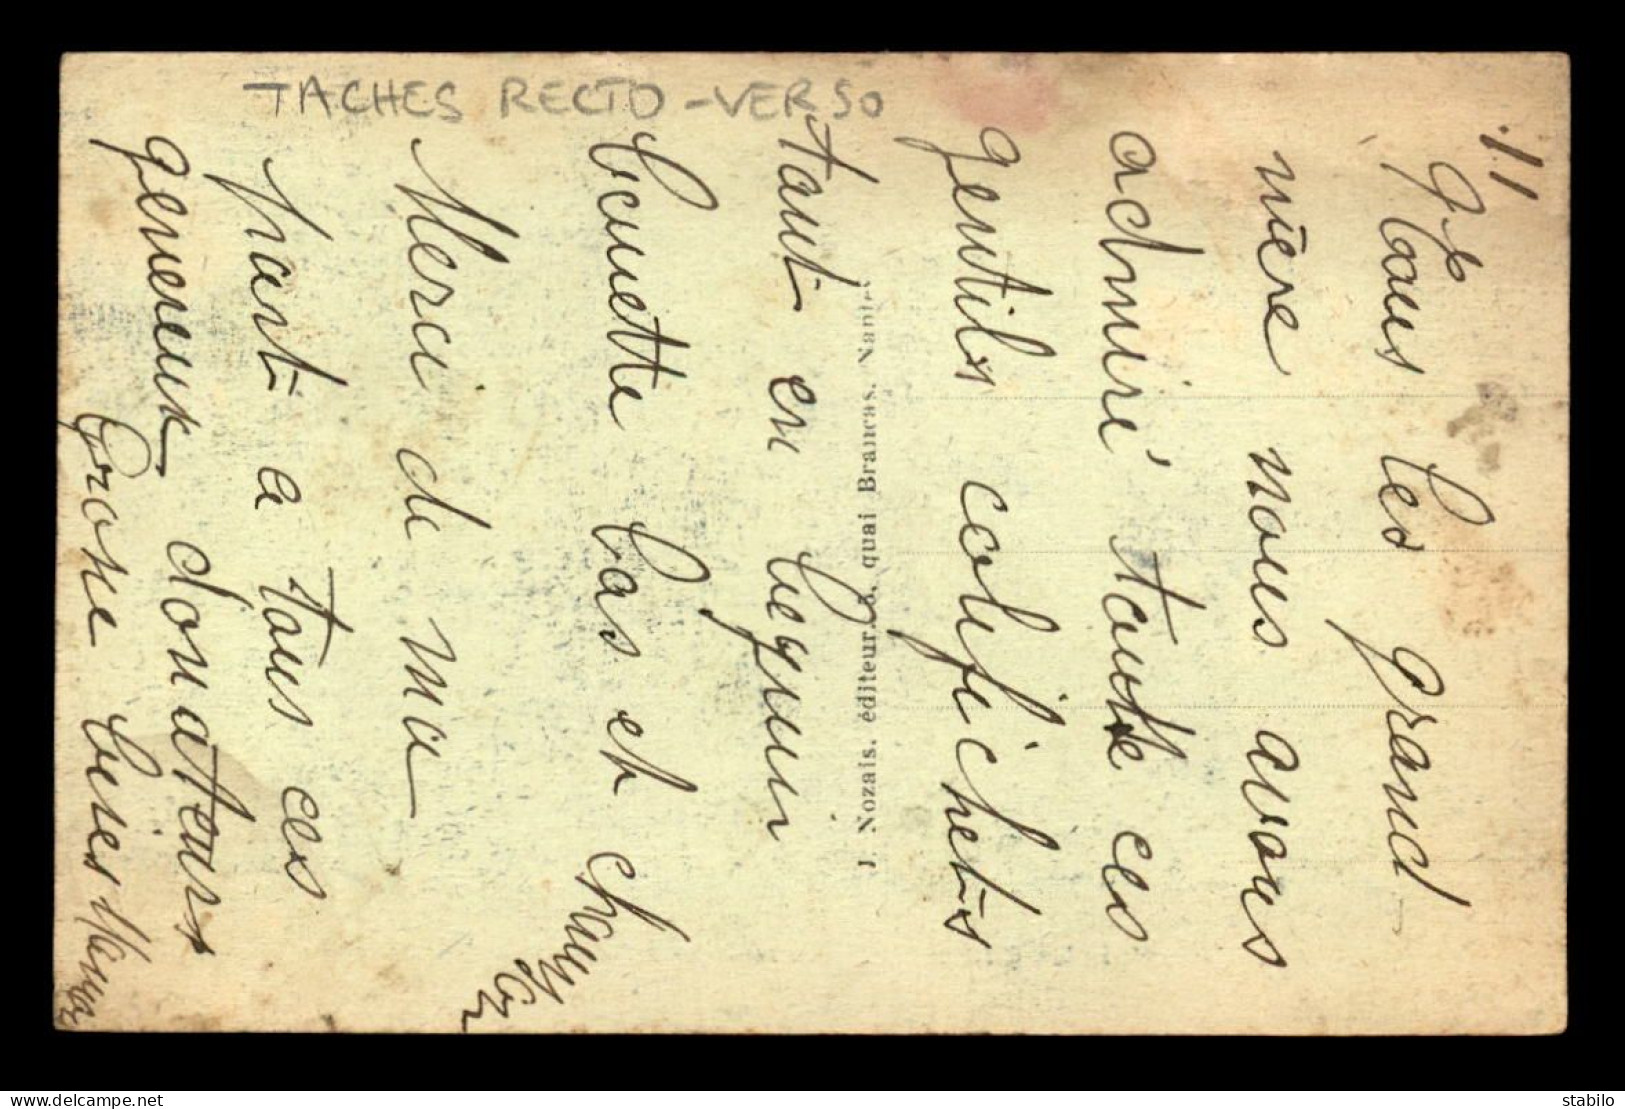 TACHES RECTO-VERSO
11
les grand
mère nous avons
admiré toute ces
gentils colifichets
tant en beguin
bavette bas et
Merci de ma
part a tous ces
genereux donateurs
bises Maman
J. Nozais, éditeur, quai Brancas, Nantes
https://www.delcampe.net
stabilo